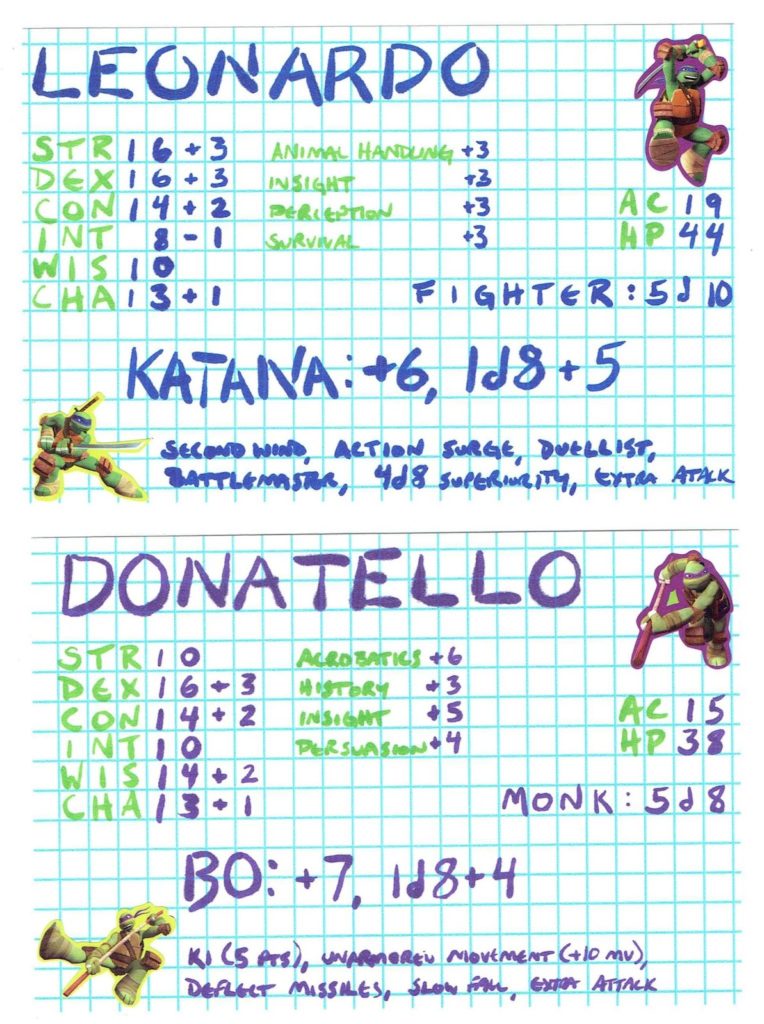 LEONARDO
STR 16 + 3 ANIMAL HANDLING +3
DEX 16 + 3 INSIGHT +3
CON 14 + 2 PERCEPTION +3 AC 19
INT 8 - 1 SURVIVAL +3 HP 44
WIS 10
CHA 13 + 1 FIGHTER: 5d10
KATANA: +6, 1d8 + 5
SECOND WIND, ACTION SURGE, DUELLIST,
BATTLEMASTER, 4d8 SUPERIORITY, EXTRA ATTACK
DONATELLO
STR 10 ACROBATICS +6
DEX 16 + 3 HISTORY +3
CON 14 + 2 INSIGHT +5 AC 15
INT 10 PERSUASION +4 HP 38
WIS 14 + 2
CHA 13 + 1 MONK: 5d8
BO: +7, 1d8+4
KI (5 PTS), UNARMORED MOVEMENT (+10 MV),
DEFLECT MISSILES, SLOW FALL, EXTRA ATTACK